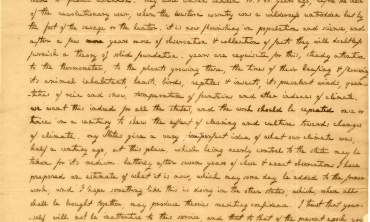 of the revolutionary war, when the western country was a wilderness untrodden but by
the feet of the savage or the hunter. it is now flourishing in population and science, and
after a few more years of observation & collection of facts they will doubtless
furnish a theory of solid foundation. years are requisite for this, steady attention
to the thermometer, to the plants growing there, the times of their leafing & flowering
it's animal inhabitants, beasts, birds, reptiles & insects, it's prevalent winds, quan
tities of rain and snow, temperature of fountains and other indexes of climate.
we want this indeed for all the states, and the work should be repeated once or
twice in a century to shew the effect of clearing and culture towards changes
of climate. my Notes give a very imperfect idea of what our climate was,
half a century ago, at this place, which being nearly central to the state may be
taken for it's medium. latterly, after seven years of close & exact observation, I have
prepared an estimate of what it is now, which may some day be added to the former
work, and I hope something like this is doing in the other states, which when all
shall be brought together may produce theories meriting confidence. I trust that your-
self will not be inattentive to this service, and that to that of the present epoch you